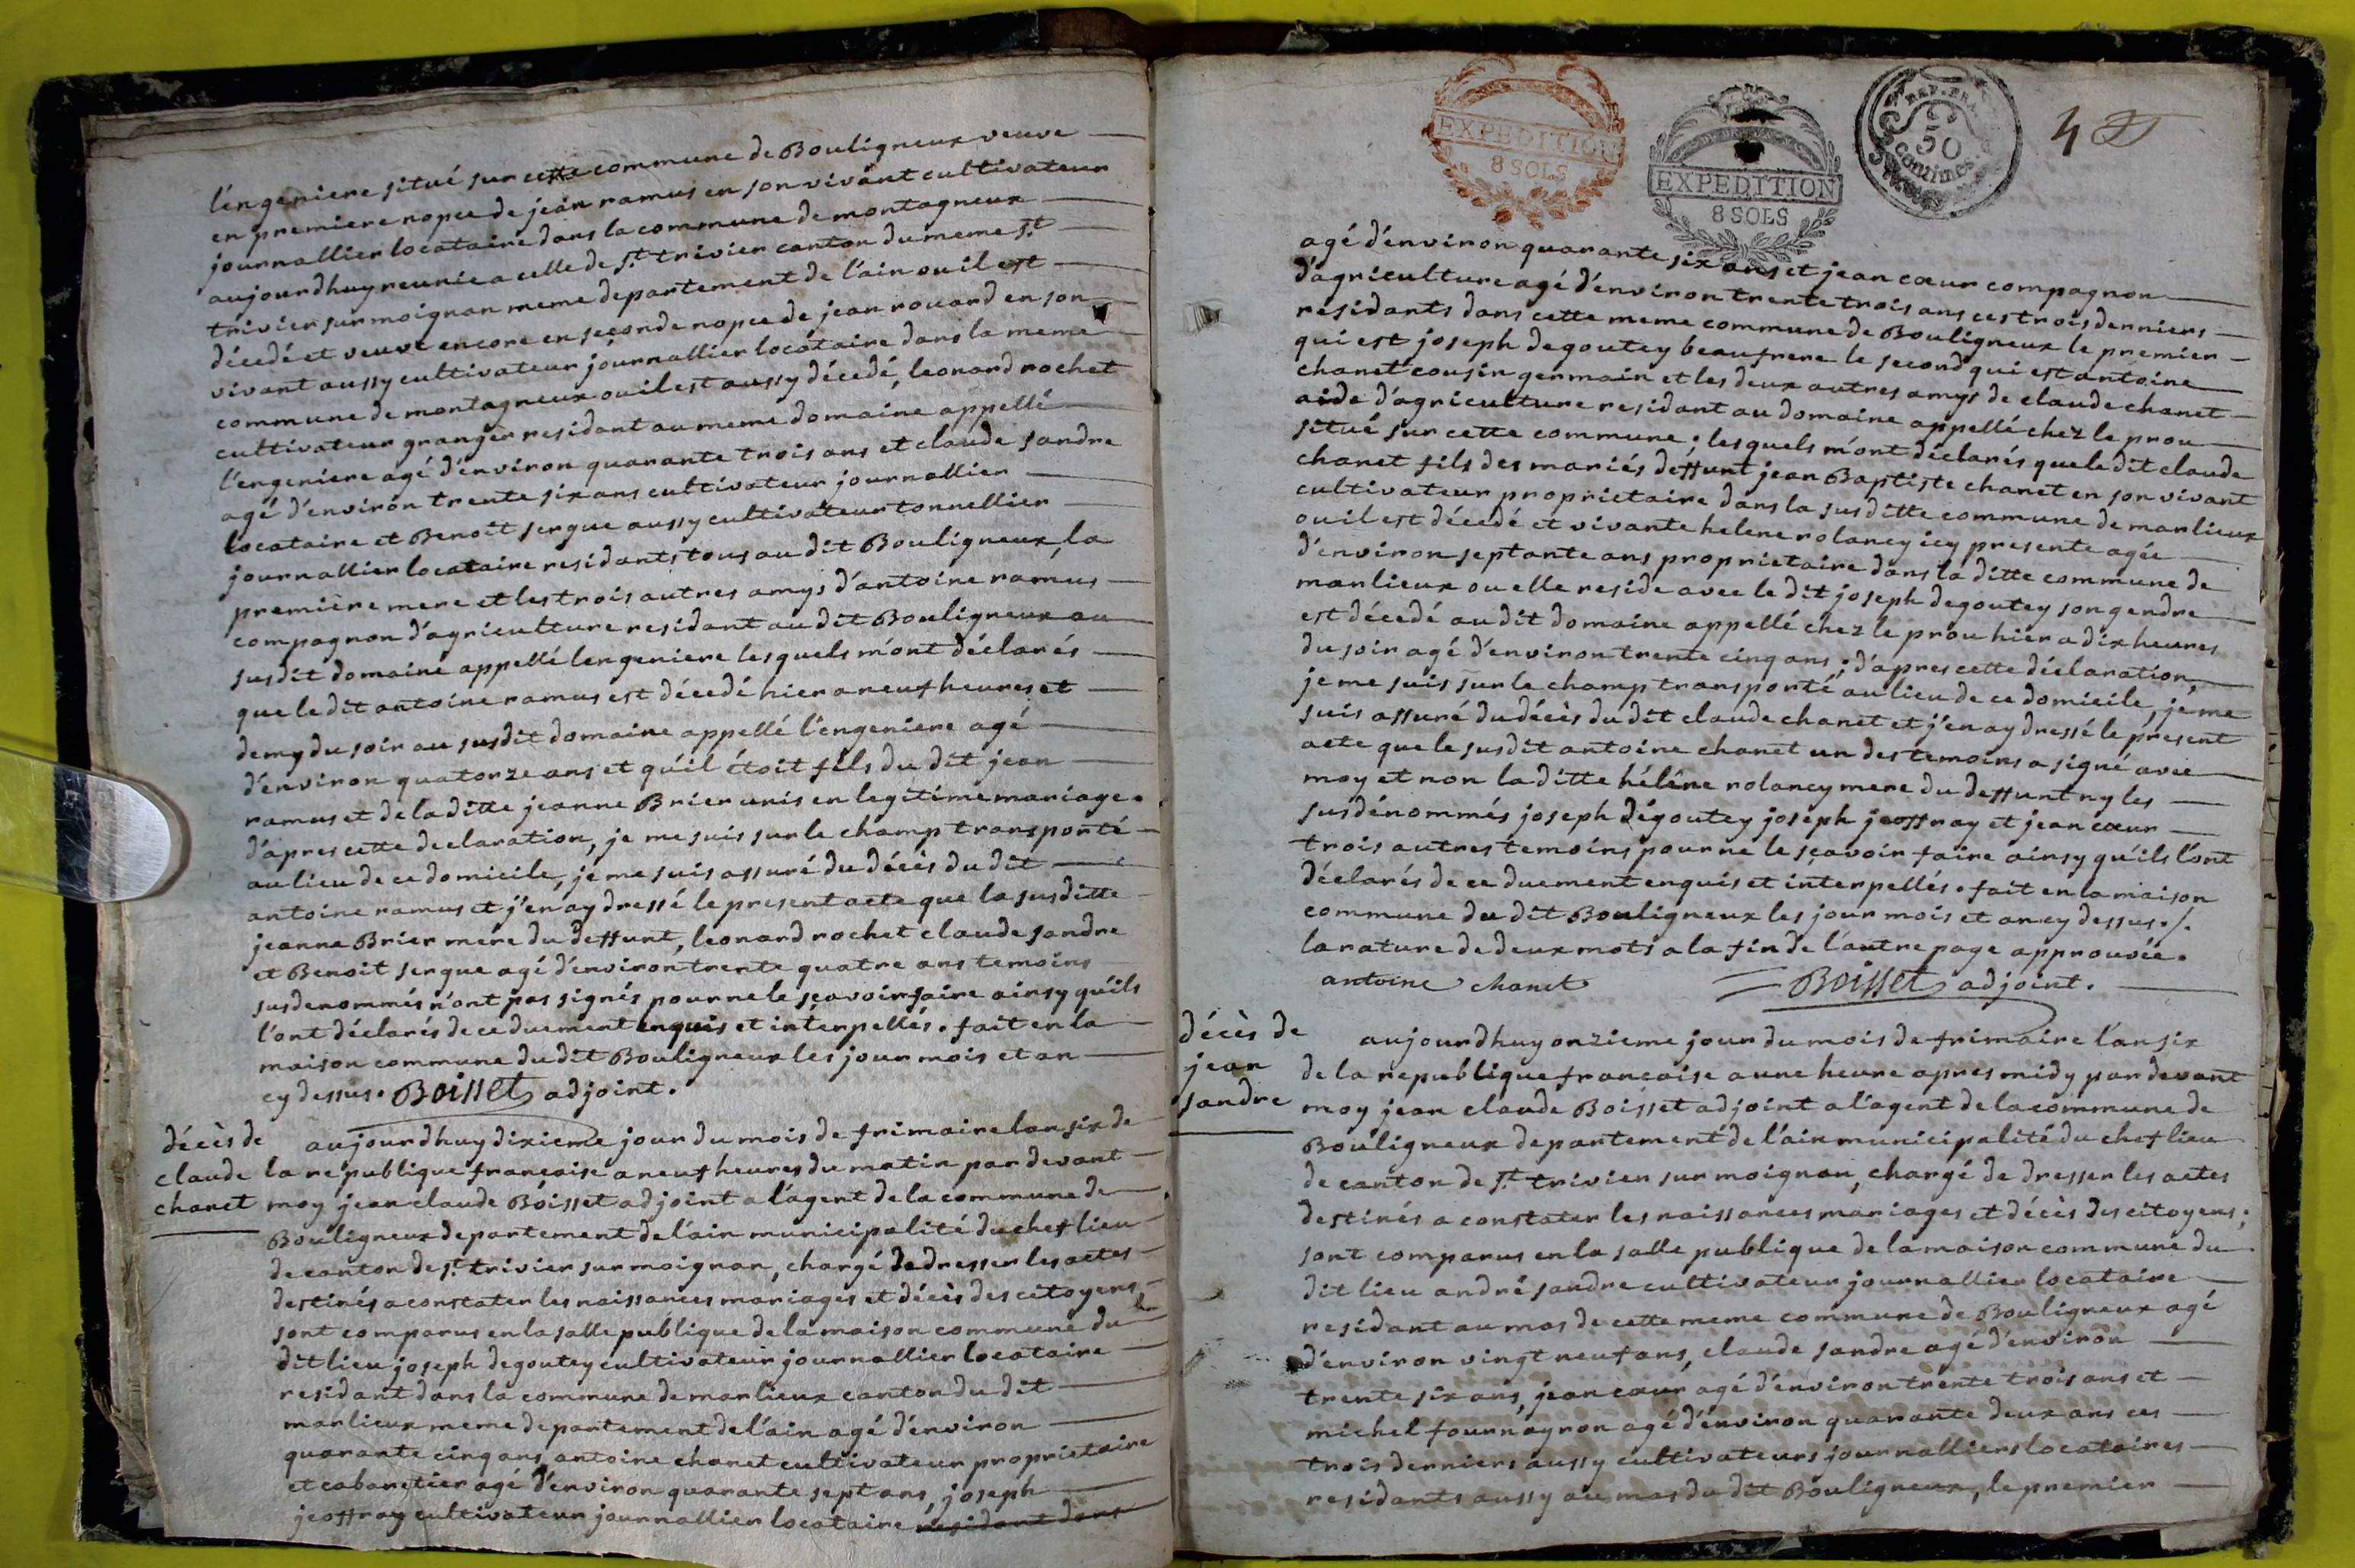 l'engeniere situé sur cette commune de Bouligneux veuve
en premiere nopce de jean ramus en son vivant cultivateur
journallier locataire dans la commune de montagneux
aujourdhuy reunie a celle de St. trivier canton du meme St.
trivier sur moignan meme departement de l'ain ou il est
décedé et veuve encore en seconde nopce de jean rouard en son
vivant aussy cultivateur journallier locataire dans la meme
commune de montagneux ou il est aussy décedé, leonard rochet
cultivateur granger residant au meme domaine appellé
l'engeniere agé d'environ quarante trois ans et claude sandre
agé d'environ trente six ans cultivateur journallier
locataire et Benoit sergue aussy cultivateur tonnellier
journallier locataire residants tous au dit Bouligneux, la
première mere et les trois autres amys d'antoine ramus
compagnon d'agriculture residant au dit Bouligneux au
susdit domaine appellé lengeniere lesquels m'ont déclarés
que le dit antoine ramus est décedé hier a neuf heures et
demy du soir au susdit domaine appellé l'engeniere agé
d'environ quatorze ans et qu'il étoit fils du dit jean
ramus et de la ditte jeanne Brier unis en legitime mariage.
d'apres cette declaration, je me suis sur le champ transporté
au lieu de ce domicile, je me suis assuré du décès du dit
antoine ramus et j'en ay dressé le present acte que la susditte
jeanne Brier mere du deffunt, leonard rochet claude sandre
et Benoit sergue agé d'environ trente quatre ans temoins
susdenommés n'ont pas signés pour ne le sçavoir faire ainsy qu'ils
l'ont déclarés de ce duement enquis et interpellés. fait en la
maison commune du dit Bouligneux les jour mois et an
cy dessus. Boisset adjoint.
décès de
claude
chanet
aujourdhuy dixieme jour du mois de frimaire lan six de
la republique française a neuf heures du matin par devant
moy jean claude Boisset adjoint a l'agent de la commune de
Bouligneux departement de l'ain municipalité du chef lieu
de canton de St. trivier sur moignan, chargé de dresser les actes
destinés a constater les naissances mariages et décès des citoyens,
sont comparus en la salle publique de la maison commune du
dit lieu joseph degoutey cultivateur journallier locataire
residant dans la commune de marlieux canton du dit
marlieux meme departement de l'ain agé d'environ
quarante cinq ans, antoine chanet cultivateur proprietaire
et cabaretier agé d'environ quarante sept ans, joseph
jeoffray cultivateur journallier locataire residant dans
EXPEDITION
8 SOLS
EXPEDITION
8 SOLS
REP. FRA.
50
centimes.
4
agé d'environ quarante six ans et jean cœur compagnon
d'agriculture agé d'environ trente trois ans ces trois derniers
residants dans cette meme commune de Bouligneux le premier
qui est joseph degoutey beaufrere le second qui est antoine
chanet cousin germain et les deux autres amys de claude chanet
aide d'agriculture residant au domaine appellé chez le prou
situé sur cette commune; lesquels m'ont déclarés que le dit claude
chanet fils des mariés deffunt jean Baptiste chanet en son vivant
cultivateur proprietaire dans la susditte commune de marlieux
ou il est décedé et vivante helene rolancy icy presente agée
d'environ septante ans proprietaire dans la ditte commune de
marlieux ou elle reside avec le dit joseph degoutey son gendre
est décedé au dit domaine appellé chez le prou hier a dix heures
du soir agé d'environ trente cinq ans; d'apres cette déclaration,
je me suis sur le champ transporté au lieu de ce domicile, je me
suis assuré du décès du dit claude chanet et j'en ay dressé le present
acte que le susdit antoine chanet un des temoins a signé avec
moy et non la ditte hélène rolancy mere du deffunt ny les
susdénommés joseph dégoutey joseph jeoffray et jean cœur
trois autres témoins pour ne le sçavoir faire ainsy qu'ils l'ont
déclarés de ce duement enquis et interpellés. fait en la maison
commune du dit Bouligneux les jour mois et an cy dessus./.
la rature de deux mots a la fin de l'autre page approuvée.
antoine chanet Boisset adjoint.
décès de
jean
sandre
aujourdhuy onzieme jour du mois de frimaire l'an six
de la republique française a une heure apres midy par devant
moy jean claude Boisset adjoint a l'agent de la commune de
Bouligneux departement de l'ain municipalité du chef lieu
de canton de St. trivier sur moignan, chargé de dresser les actes
destinés a constater les naissances mariages et décès des citoyens;
sont comparus en la salle publique de la maison commune du
dit lieu andré sandre cultivateur journallier locataire
residant au mas de cette meme commune de Bouligneux agé
d'environ vingt neuf ans, claude sandre agé d'environ
trente six ans, jean cœur agé d'environ trente trois ans et
michel fournayron agé d'environ quarante deux ans ces
trois derniers aussy cultivateurs journalliers locataires
residants aussy au mas du dit Bouligneux, le premier